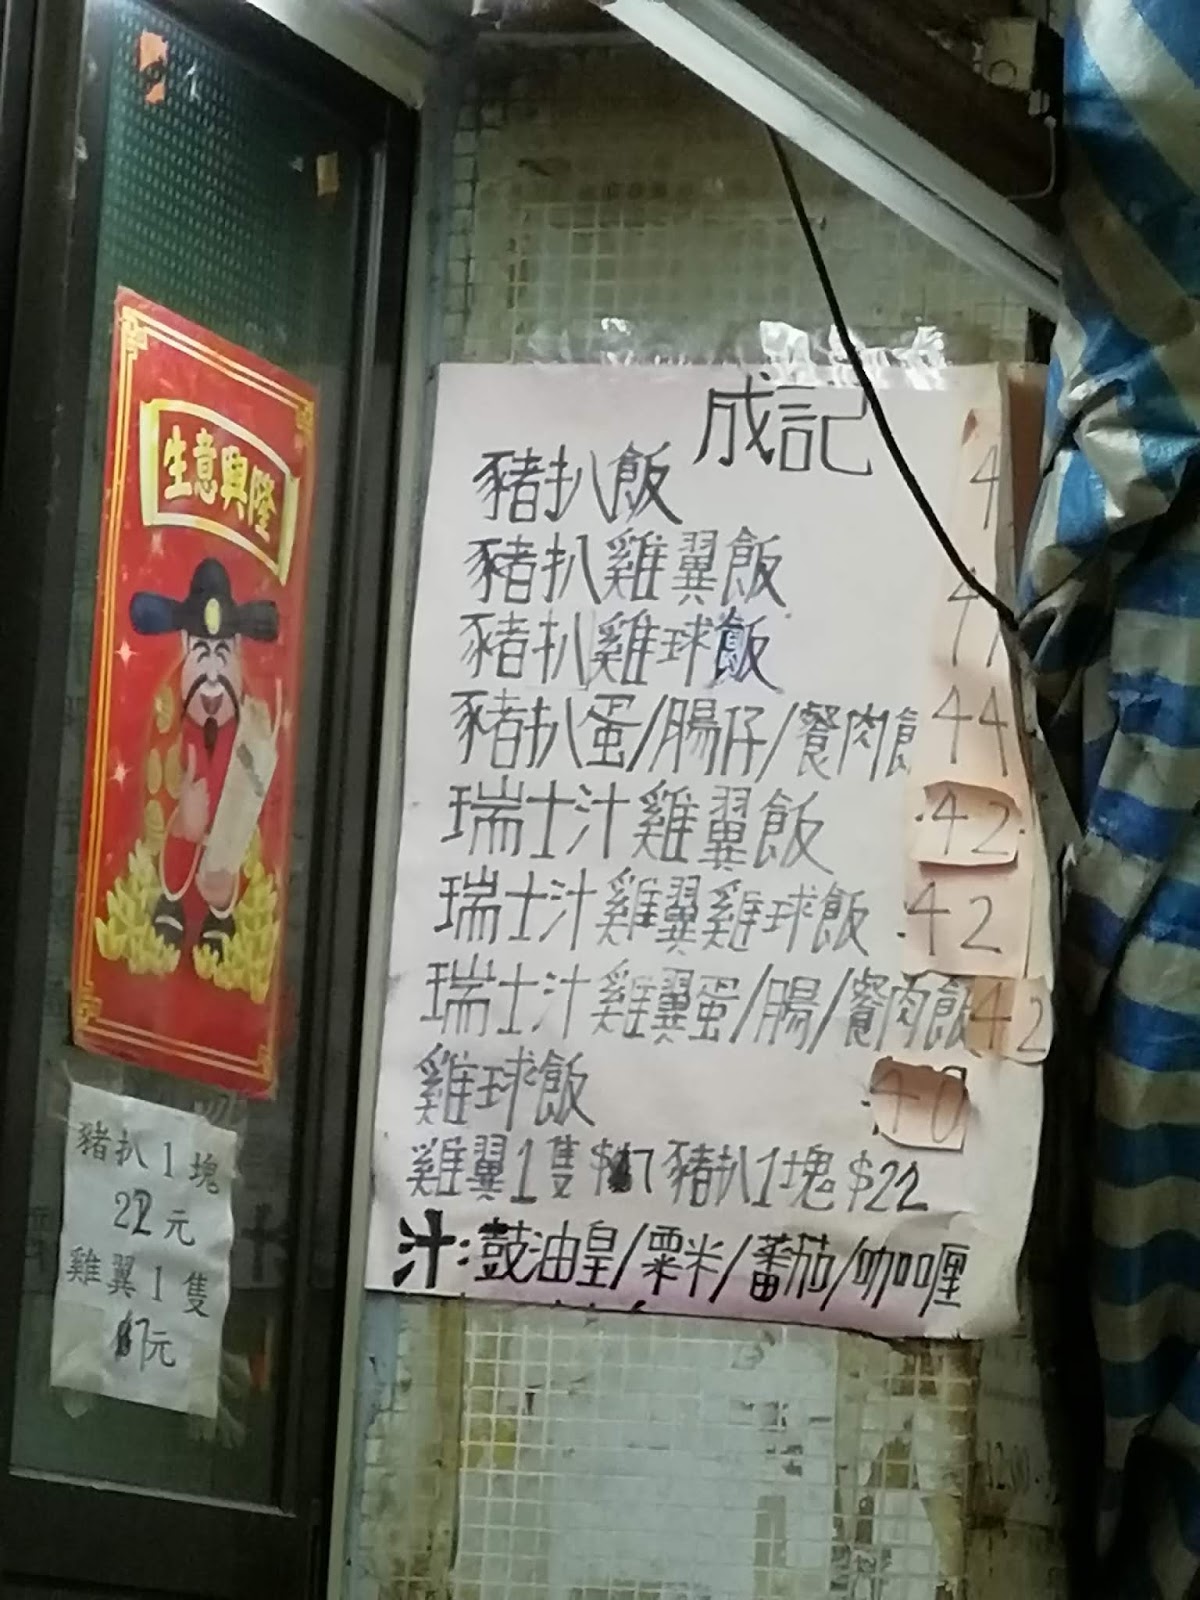 生意興隆
成記
豬扒飯 4
豬扒雞翼飯 4
豬扒雞球飯
豬扒蛋/腸仔/餐肉飯 44
瑞士汁雞翼飯 42
瑞士汁雞翼雞球飯 42
瑞士汁雞翼蛋/腸/餐肉飯 42
雞球飯 40
雞翼1隻$17 豬扒1塊$22
汁:豉油皇/粟米/蕃茄/咖喱
豬扒1塊
22元
雞翼1隻
17元